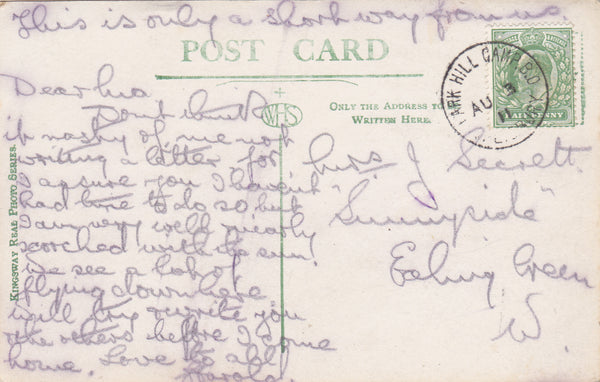 This is only a short way from us
POST CARD
Dear Ma
Dont think it
is nasty of me not
writing a letter for
I assure you I havent
had time to do so but
I am very well nearly
scorched with the sun.
We see a lot of
flying down here
will try & write you
& the others before I come
home. Love to all
Harold
KINGSWAY REAL PHOTO SERIES.
WHS
ONLY THE ADDRESS TO BE
WRITTEN HERE.
PARK HILL CAMP
AU 3
11
HALFPENNY
Mrs J Secrett
"Sunnyside"
Ealing Green
W.